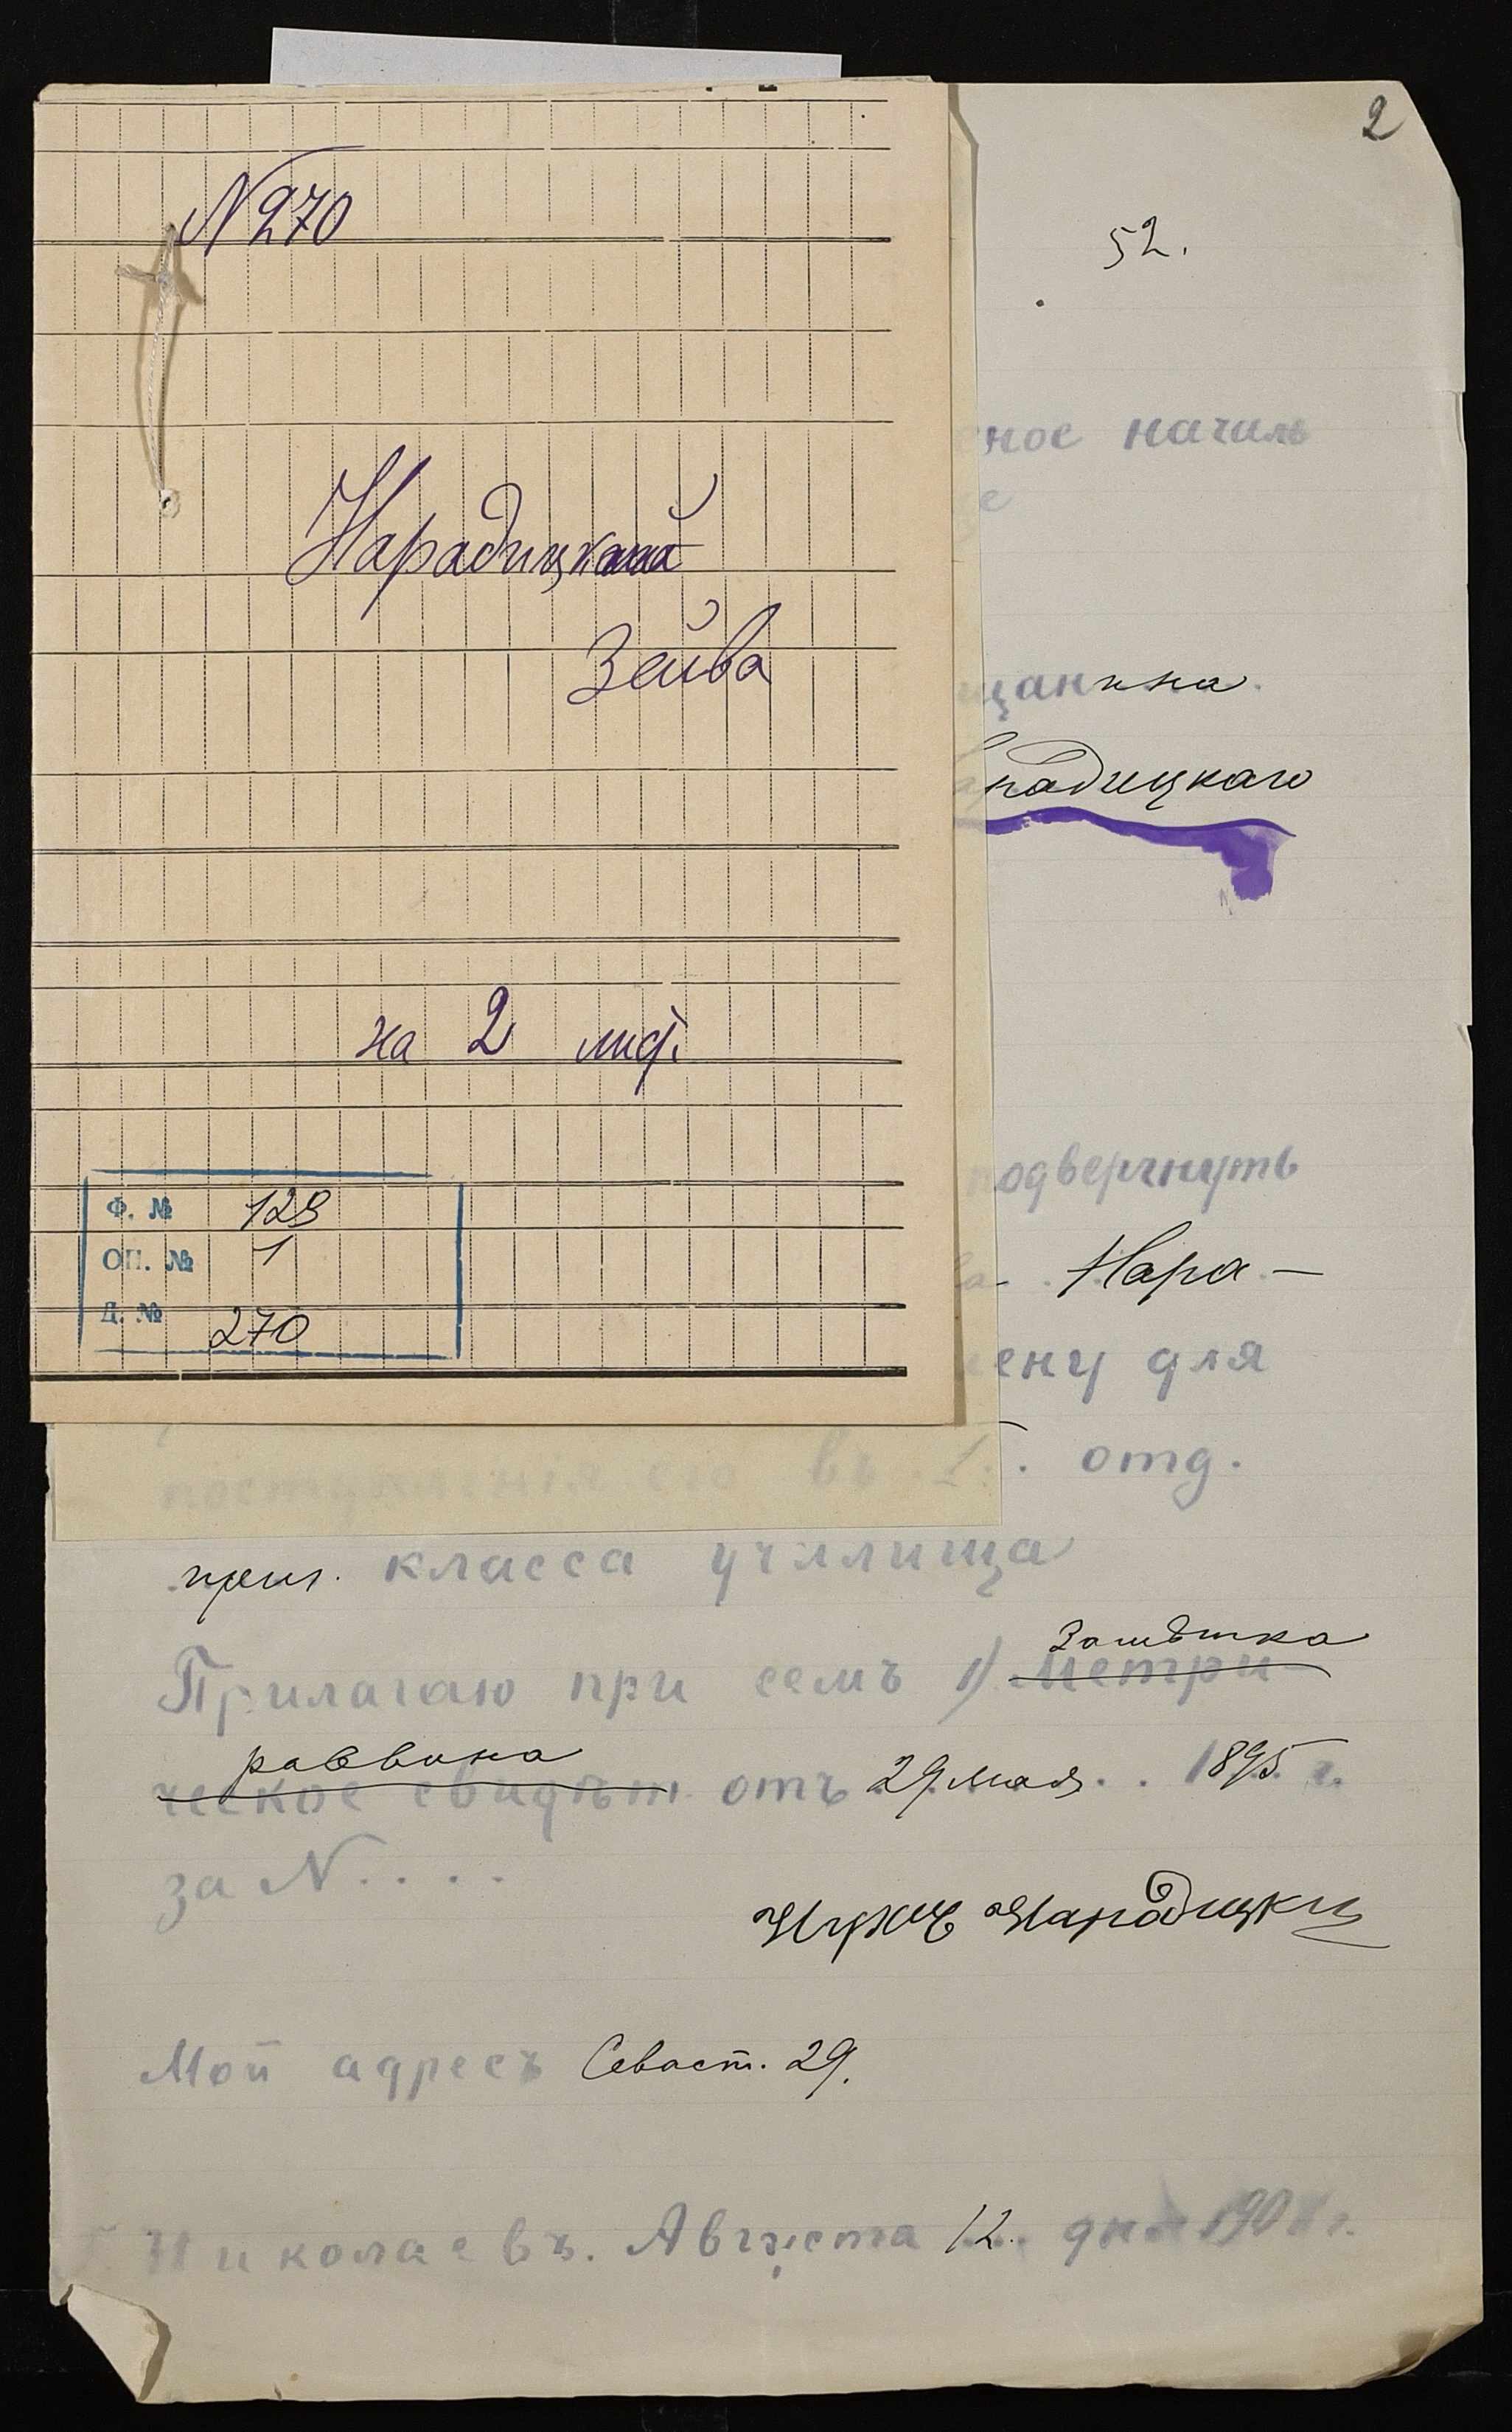 N 270
Нарадицкий
Зейва
на 2 лис.
Ф. № 129
ОП. № 1
Д. № 270
2
52.
ное началь
е
щанина.
радицкаго
подвергнуть
ва Нара-
ену для
поступленія его въ 1. отд.
приг. класса училища
Замѣтка
Прилагаю при семъ 1) Метри-
раввина
ческое свидѣт. отъ 29 мая 1895 г.
за N....
Нухим Нарадицки
Мой адресъ Севаст. 29.
Николаевъ. Августа 12 дня 1904 г.